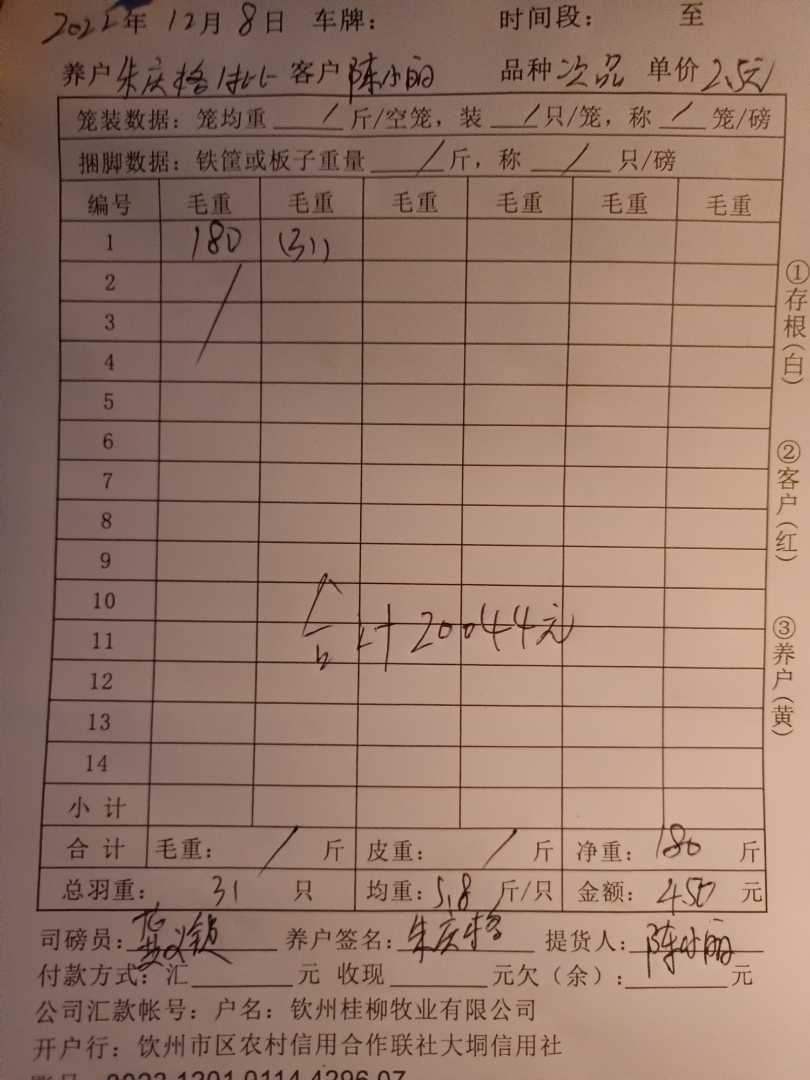 年 12月 8日 车牌： 时间段： 至
养户 朱庆格 客户 陈小丽 品种 次品 单价 2.5元
笼装数据：笼均重 / 斤/空笼，装 / 只/笼，称 / 笼/磅
捆脚数据：铁筐或板子重量 / 斤，称 / 只/磅
编号 毛重 毛重 毛重 毛重 毛重 毛重
1 180 (31)
2
3
4
5
6
7
8
9
10
合计 20044元
11
12
13
14
小计
合计 毛重： / 斤 皮重： / 斤 净重： 180 斤
总羽重： 31 只 均重： 5.8 斤/只 金额： 450 元
司磅员： 养户签名： 朱庆格 提货人： 陈小丽
付款方式：汇 元 收现 元欠（余）： 元
公司汇款帐号：户名：钦州桂柳牧业有限公司
开户行：钦州市区农村信用合作联社大垌信用社
①存根（白）
②客户（红）
③养户（黄）